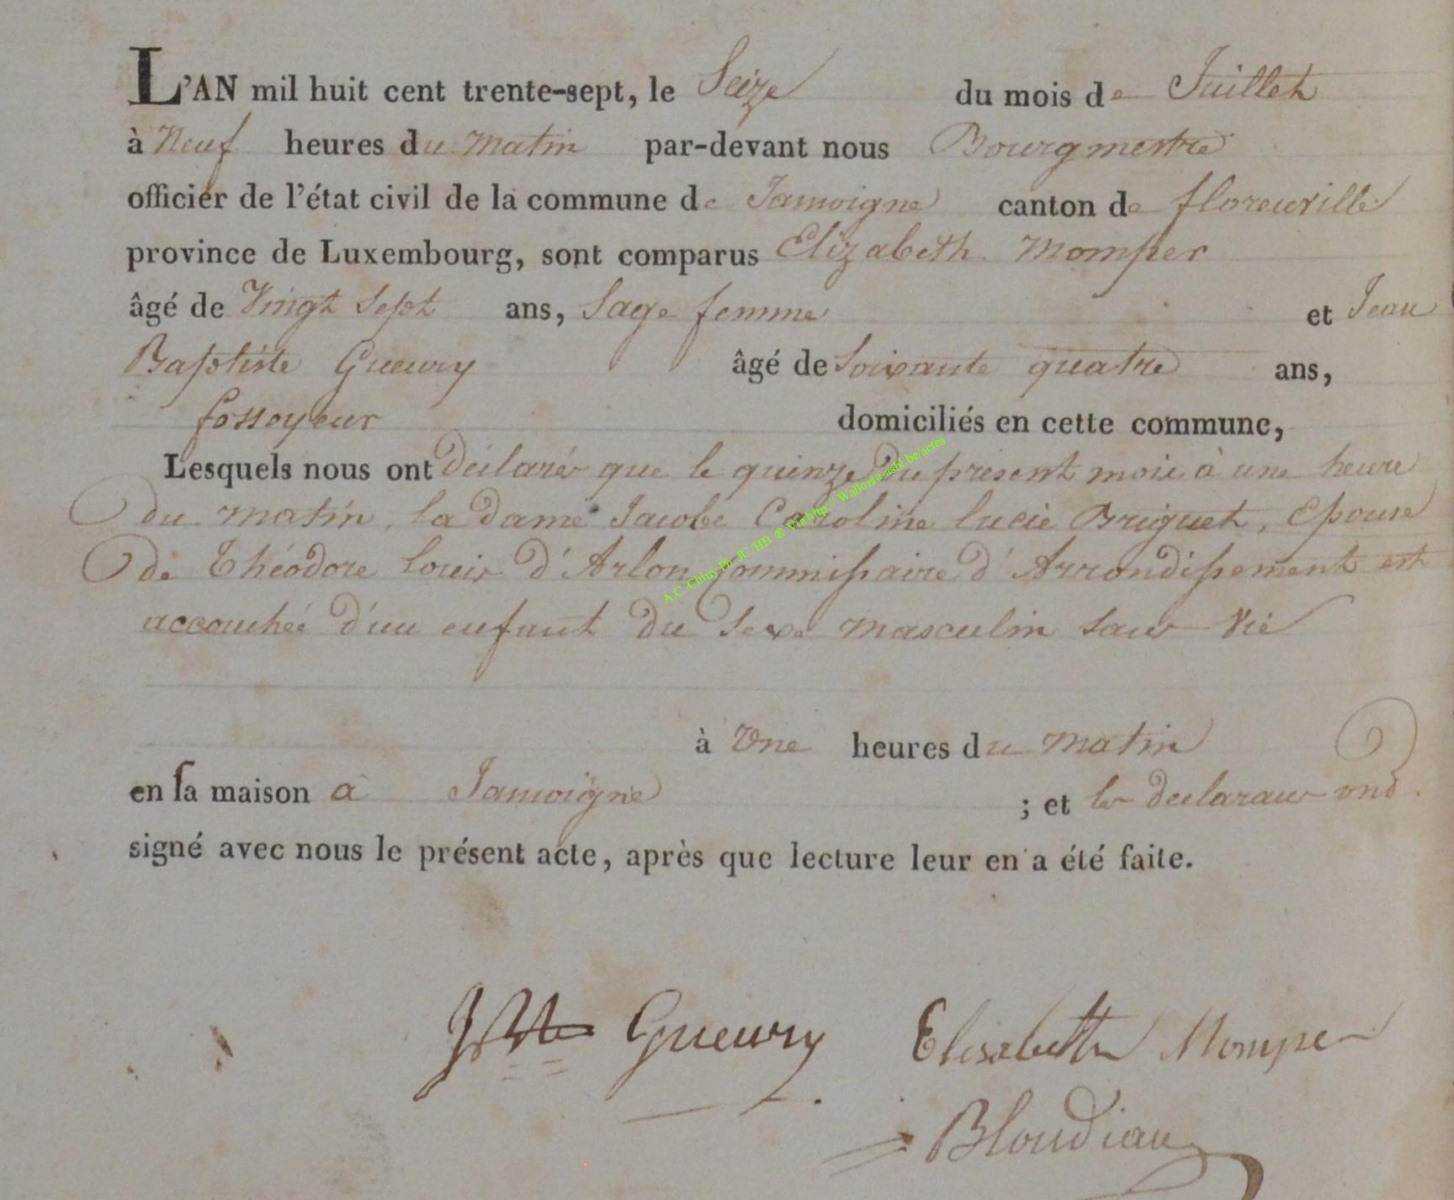 L'AN mil huit cent trente-sept, le Seize du mois de Juillet
à Neuf heures du matin par-devant nous Bourgmestre
officier de l'état civil de la commune de Jamoigne canton de florenville
province de Luxembourg, sont comparus Elizabeth Momper
âgé de Vingt Sept ans, Sage femme et Jean
Baptiste Gueury âgé de Soixante quatre ans,
fossoyeur domiciliés en cette commune,
Lesquels nous ont déclaré que le quinze du présent mois à une heure
du matin, la dame Jacobe Caroline Lucie Briguet, Epouse
de Théodore Louis d'Arlon, Commissaire d'Arrondissement est
accouchée d'un enfant du Sexe masculin sans Vie
à Une heures du matin
en sa maison à Jamoigne ; et les declarans ond
signé avec nous le présent acte, après que lecture leur en a été faite.
JBte Gueury Elisabeth Momper
Bloudiau